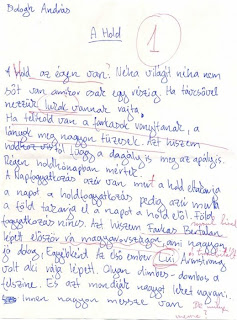 Balogh András
A Hold
1
A Hold az égen van. Néha világít néha nem
sőt van amikor csak egy részig. Ha távcsővel
nézzük lukak vannak rajta.
Ha telihold van a farkasok vonyítanak, a
lányok meg nagyon tüzesek. Azt hiszem
a dagály is meg az apály is.
Régen holdhónapban mértek.
A Napfogyatkozás azért van mert a hold eltakarja
a napot a holdfogyatkozás pedig azért mert
a föld takarja el a napot a hold elől. Föld
fogyatkozás nincs. Azt hiszem Farkas Bertalan
lépett először rá magyarországról, ami nagyon
jó dolog. Egyébként az első ember Lui Armstrong
volt aki rája lépett. Olyan dimbes-dombos a
felszíne. És azt mondják nagyot lehet ugrani.
Innen nagyon messze van